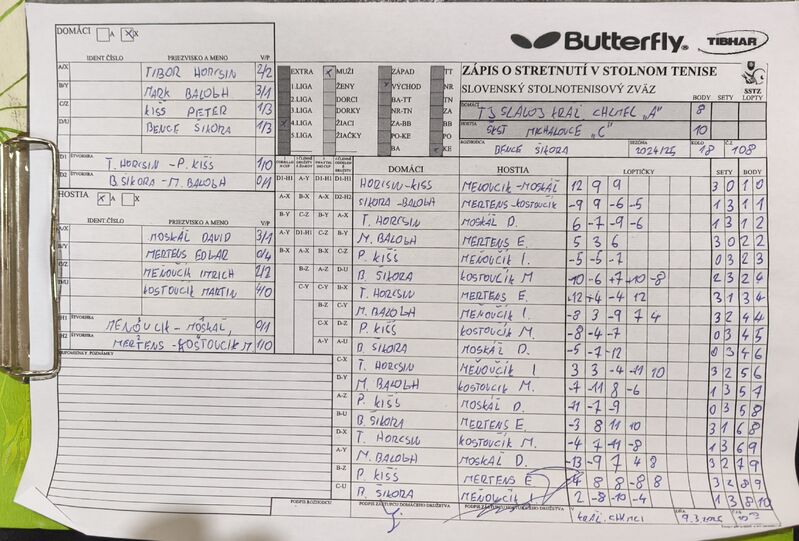 DOMÁCI A X
Butterfly TIBHAR
IDENT ČÍSLO PRIEZVISKO A MENO V/P
A/X TIBOR HORCSIN 2/2
B/Y MARK BALOGH 3/1
C/Z KISS PETER 1/3
D/U BENCE SIKORA 1/3
D1 ŠTVORHRA T. HORCSIN - P. KISS 1/0
D2 B. SIKORA - M. BALOGH 0/1
HOSTIA A X
IDENT.ČÍSLO PRIEZVISKO A MENO V/P
A/X MOSKÁĽ DAVID 3/1
B/Y MERTENS EDGAR 0/4
C/Z MEŇOVČÍK IMRICH 2/2
D/U KOSTOVČÍK MARTIN 4/0
H1 ŠTVORHRA MEŇOVČÍK - MOSKÁĽ 0/1
H2 ŠTVORHRA MERTENS - KOSTOVČÍK M 1/0
PRIPOMIENKY, POZNÁMKY
EXTRA MUŽI ZÁPAD TT
1.LIGA ŽENY VÝCHOD NR
2.LIGA DORCI BA-TT TN
3.LIGA DORKY NR-TN ZA
4.LIGA ŽIACI ZA-BB BB
5.LIGA ŽIAČKY PO-KE PO
BA KE
ZÁPIS O STRETNUTÍ V STOLNOM TENISE
SLOVENSKÝ STOLNOTENISOVÝ ZVÄZ SSTZ
BODY SETY LOPTY
DOMÁCI TJ SLAVOJ KRÁĽ CHLMEC "A" 8
HOSTIA ŠKST MICHALOVCE "C" 10
ROZHODCA BENCE SIKORA SEZÓNA 2024/25 KOLO 18 Č.Z. 108
DOMÁCI HOSTIA LOPTIČKY SETY BODY
HORCSIN-KISS MEŇOVČÍK-MOSKÁĽ 12 9 9 3 0 1 0
SIKORA-BALOGH MERTENS-KOSTOVČÍK -9 9 -6 -5 1 3 1 1
T. HORCSIN MOSKÁĽ D. 6 -7 -9 -6 1 3 1 2
M. BALOGH MERTENS E. 5 3 6 3 0 2 2
P. KISS MEŇOVČÍK I. -5 -5 -7 0 3 2 3
B. SIKORA KOSTOVČÍK M -10 -6 +7 +10 -8 2 3 2 4
T. HORCSIN MERTENS E. +12 +4 -4 12 3 1 3 4
M. BALOGH MEŇOVČÍK I. -8 3 -9 7 4 3 2 4 4
P. KISS KOSTOVČÍK M. -8 -4 -7 0 3 4 5
B. SIKORA MOSKÁĽ D. -5 -7 -12 0 3 4 6
T. HORCSIN MEŇOVČÍK I 3 3 -4 -11 10 3 2 5 6
M. BALOGH KOSTOVČÍK M. -7 -11 8 -6 1 3 5 7
P. KISS MOSKÁĽ D. -11 -7 -9 0 3 5 8
B. SIKORA MERTENS E. -3 8 11 10 3 1 6 8
T. HORCSIN KOSTOVČÍK M. -4 7 -11 -8 1 3 6 9
M. BALOGH MOSKÁĽ D. -13 -9 7 4 8 3 2 7 9
P. KISS MERTENS E 4 8 8 -8 8 3 2 8 9
B. SIKORA MEŇOVČÍK I 2 -8 -10 -4 1 3 8 10
PODPIS ROZHODCU PODPIS ZÁSTUPCU DOMÁCEHO DRUŽSTVA PODPIS ZÁSTUPCU HOSŤUJÚCEHO DRUŽSTVA V KRÁĽ. CHLMCI DŇA 9.3.2025